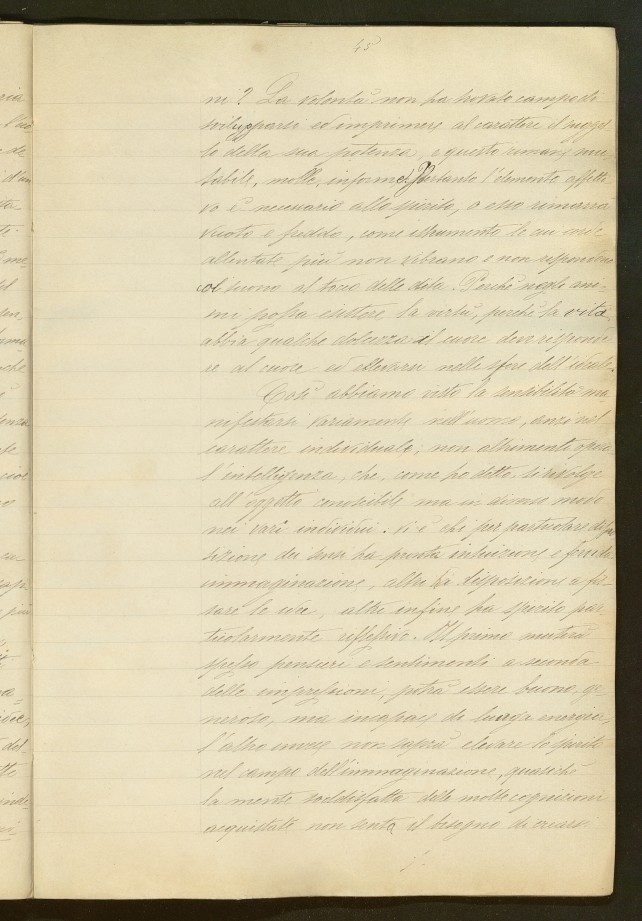 45
ni? La volontà non ha trovato campo di
svilupparsi ed imprimere al carattere il suggel-
lo della sua potenza, e questo rimane mu-
tabile, molle, informe. Pertanto l'elemento affetti-
vo è necessario allo spirito, o esso rimarrà
vuoto e freddo, come istrumento le cui corde
allentate più non vibrano e non rispondono
al suono al tocco delle dita. Perchè negli ani-
mi possa esistere la virtù, perchè la vita
abbia qualche dolcezza il cuore deve risponde-
re al cuore ed elevarsi nelle sfere dell'ideale.
Così abbiamo visto la sensibilità ma-
nifestarsi variamente nell'uomo, anzi nel
carattere individuale; non altrimenti opera
l'intelligenza, che, come ho detto, si rivolge
all'oggetto conoscibile ma in diverso modo
nei vari individui. Vi è chi per particolare dispo-
sizione dei sensi ha pronta intuizione e fervida
immaginazione, altri ha disposizione a fis-
sare le idee, altri infine ha spirito par-
ticolarmente riflessivo. Il primo muterà
spesso pensieri e sentimenti a seconda
delle impressioni, potrà essere buono, ge-
neroso, ma incapace di lunga energia;
l'altro invece non saprà elevare lo spirito
nel campo dell'immaginazione, quasichè
la mente soddisfatta delle molte cognizioni
acquistate non senta il bisogno di crearsi